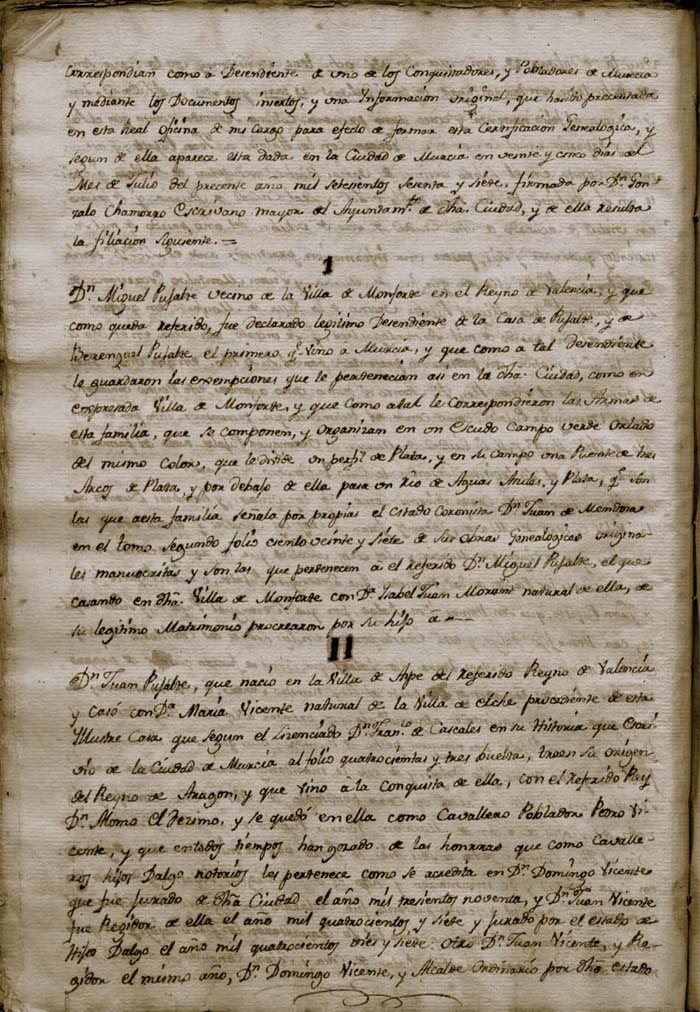 Correspondian como a Desendiente de uno de los Conquistadores, y Pobladores de Murcia
y mediante los Documentos insertos, y una Informacion original, que ha sido precentada
en esta Real Oficina de mi Cargo para efecto de formar esta Certificacion Genealogica, y
segun de ella aparece esta dada en la Ciudad de Murcia en veinte y cinco dias del
Mes de Julio del precente año mil setesientos sesenta y siete, firmada por Dn. Gon-
zalo Chamorro Escrivano mayor del Ayuntamto. de dha. Ciudad, y de ella resulta
la filiacion siguiente. =
1
Dn. Miguel Pujalte vecino de la Villa de Monforte en el Reyno de Valencia, y que
como queda referido, fue declarado legitimo Desendiente de la Casa de Pujalte, y de
Berenguel Pujalte el primero qe. vino a Murcia, y que como à tal desendiente
le guardaron las exempciones que le pertenecian asi en la dha. Ciudad, como en
expresada Villa de Monforte, y que como atal le Correspondieron las Armas de
esta familia, que se componen, y Organizan en un Escudo Campo verde Orlado
del mismo Color, que le divide un perfil de Plata, y en su Campo una Puente de tres
Arcos de Plata, y por debajo de ella pasa un Rio de Aguas Azules, y Plata, qe. son
las que aesta familia señala por propias el citado Coronista Dn. Juan de Mendoza
en el tomo segundo folio ciento veinte y siete de sus Obras Genealogicas origina-
les manuscritas y son las que pertenecen à el Referido Dn. Miguel Pujalte, el que
casando en dha. Villa de Monforte con Da. Isabel Juan natural de ella, de
su legitimo Matrimonio procrearon por su hijo à
II
Dn. Juan Pujalte, que nacio en la Villa de Aspe del referido Reyno de Valencia
y Casó con Da. Maria Vicente natural de la Villa de Elche procediente de esta
Illustre Casa que segun el Licenciado Dn. Franco. de Cascales en su Historia que Escri-
vio de la Ciudad de Murcia al folio quatrocientas y tres buelta, traen su origen
del Reyno de Aragon, y que vino à la Conquista de ella, con el referido Rey
Dn. Alonso El Dezimo, y se quedó en ella como Cavallero Poblador Pedro Vi-
cente, y que en todos tiempos han gozado de las honrras que como Cavalle-
ros hijos Dalgo notorios les pertenece como se acredita en Dn. Domingo Vicente
que fue Jurado de dha Ciudad el año mil tresientos noventa, y Dn. Juan Vicente
fue Regidor de ella el año mil quatrocientos y siete y Jurado por el estado de
Hijos Dalgo el año mil quatrocientos dies y siete: otro Dn. Juan Vicente, y Re-
gidor el mismo año, Dn. Domingo Vicente, y Alcalde Ordinario por dho. estado